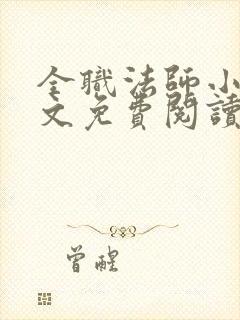 全職法師小
文免費閱讀
曾醒